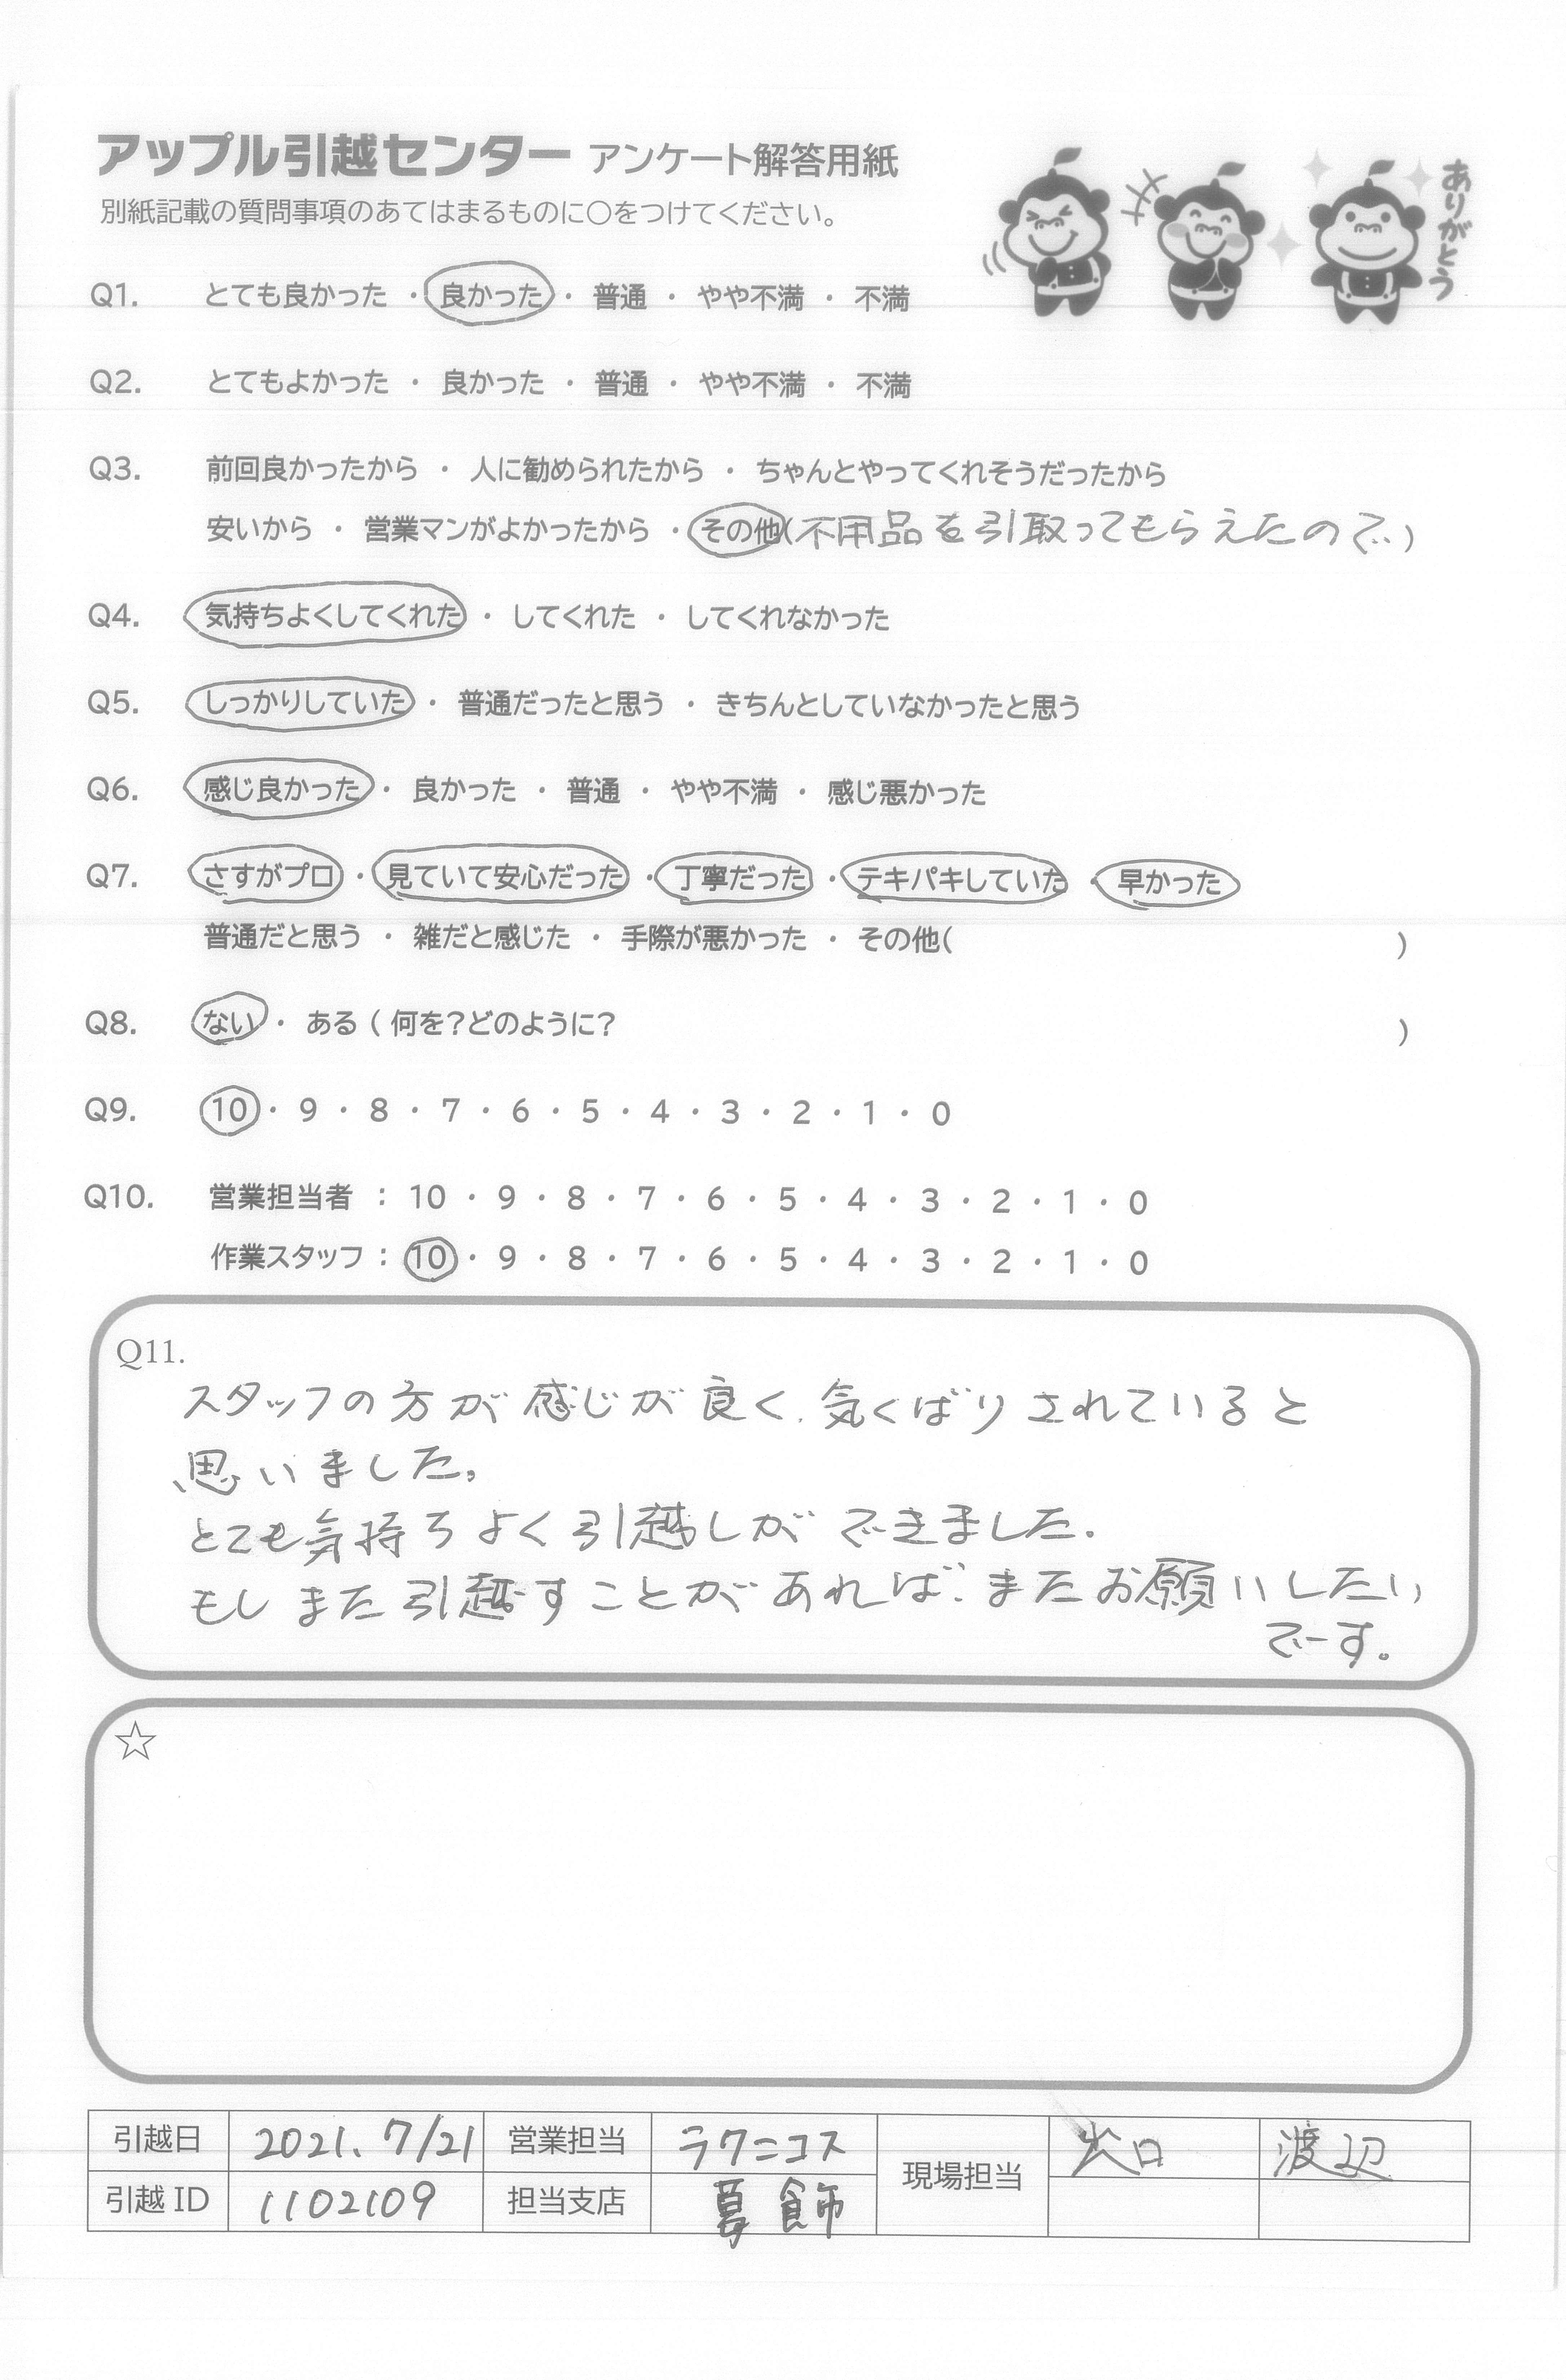 アップル引越センター アンケート解答用紙
別紙記載の質問事項のあてはまるものに○をつけてください。
ありがとう
Q1. とても良かった ・ 良かった ・ 普通 ・ やや不満 ・ 不満
Q2. とてもよかった ・ 良かった ・ 普通 ・ やや不満 ・ 不満
Q3. 前回良かったから ・ 人に勧められたから ・ ちゃんとやってくれそうだったから
安いから ・ 営業マンがよかったから ・ その他(不用品を引取ってもらえたので)
Q4. 気持ちよくしてくれた ・ してくれた ・ してくれなかった
Q5. しっかりしていた ・ 普通だったと思う ・ きちんとしていなかったと思う
Q6. 感じ良かった ・ 良かった ・ 普通 ・ やや不満 ・ 感じ悪かった
Q7. さすがプロ ・ 見ていて安心だった ・ 丁寧だった ・ テキパキしていた ・ 早かった
普通だと思う ・ 雑だと感じた ・ 手際が悪かった ・ その他( )
Q8. ない ・ ある ( 何を?どのように? )
Q9. 10 ・ 9 ・ 8 ・ 7 ・ 6 ・ 5 ・ 4 ・ 3 ・ 2 ・ 1 ・ 0
Q10. 営業担当者 : 10 ・ 9 ・ 8 ・ 7 ・ 6 ・ 5 ・ 4 ・ 3 ・ 2 ・ 1 ・ 0
作業スタッフ : 10 ・ 9 ・ 8 ・ 7 ・ 6 ・ 5 ・ 4 ・ 3 ・ 2 ・ 1 ・ 0
Q11.
スタッフの方が感じが良く、気くばりされていると
思いました。
とても気持ちよく引越しができました。
もしまた引越すことがあれば、またお願いしたい
でーす。
☆
引越日 2021. 7/21 営業担当 ラクニコス 現場担当 出口 渡辺
引越 ID 1102109 担当支店 飾